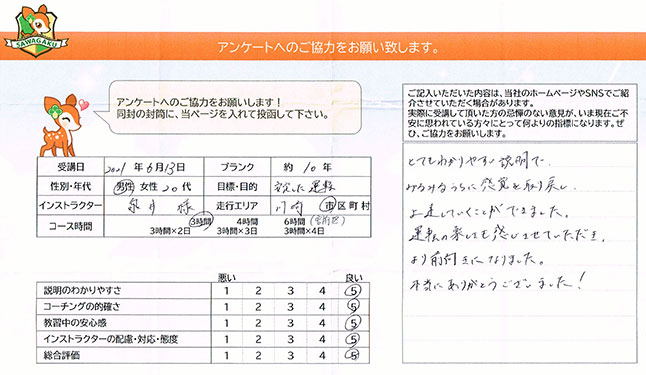 SAWAGAKU
アンケートへのご協力をお願い致します。
アンケートへのご協力をお願いします！
同封の封筒に、当ページを入れて投函して下さい。
受講日 2021年6月13日 ブランク 約10年
性別・年代 男性 女性 20代 目標・目的 安定した運転
インストラクター 様 走行エリア 川崎 市区町村
(宮前区)
コース時間 3時間 4時間 6時間
3時間×2日 3時間×3日 3時間×4日
悪い 良い
説明のわかりやすさ 1 2 3 4 5
コーチングの的確さ 1 2 3 4 5
教習中の安心感 1 2 3 4 5
インストラクターの配慮・対応・態度 1 2 3 4 5
総合評価 1 2 3 4 5
ご記入いただいた内容は、当社のホームページやSNSでご紹介させていただく場合があります。
実際に受講して頂いた方の忌憚のない意見が、いま現在ご不安に思われている方々にとって何よりの指標になります。ぜひ、ご協力をお願いします。
とてもわかりやすい説明で、
みるみるうちに感覚を取り戻し、
上達していくことができました。
運転の楽しさも感じさせていただき、
より前向きになりました。
本当にありがとうございました！